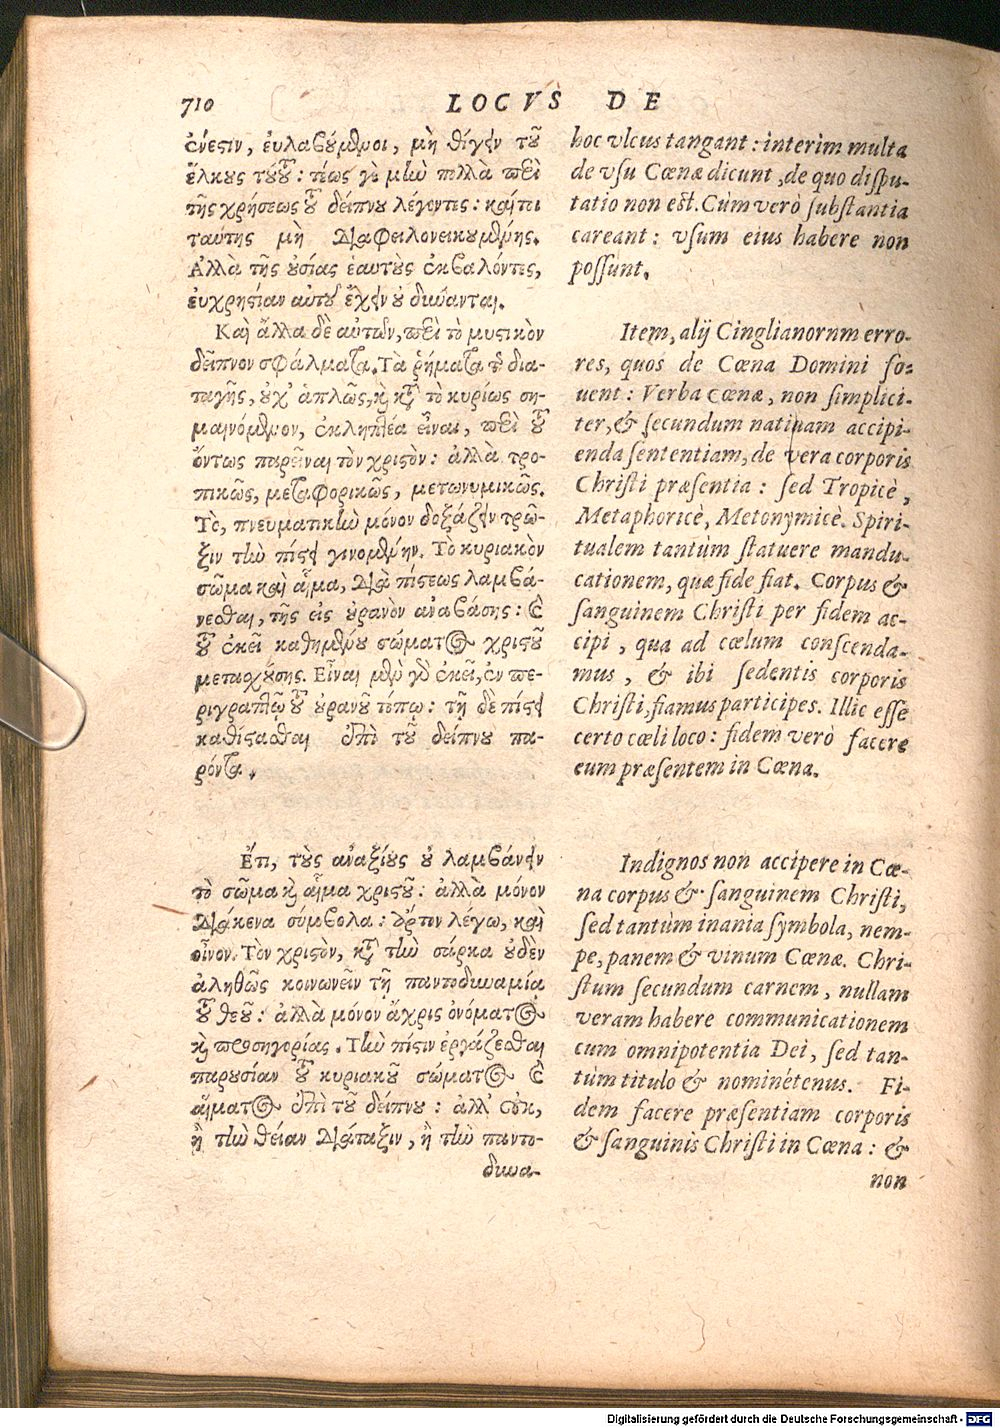 710 LOCVS DE
ἐνεστιν, ἐυλαβούμενοι, μὴ θίγειν τοῦ
ἕλκους τούτου: τέως γὸ μὲν πολλὰ περὶ
τῆς χρήσεως τοῦ δείπνου λέγοντες: καίτοι
ταύτης μὴ διαφειλονεικουμένης.
Ἀλλὰ τῆς οὐσίας ἑαυτοὺς ἐκβαλόντες,
ἐυχρηστίαν αὐτοῦ ἔχειν οὐ δύνανται.
Καὶ ἄλλα δὲ αὐτῶν, περὶ τὸ μυστικὸν
δεῖπνον σφάλματα. Τὰ ῥήματα τῆς δια-
ταγῆς, οὐχ' ἁπλῶς, καὶ κατὰ τὸ κυρίως ση-
μαινόμενον, ἐκληπτέα εἶναι, περὶ τοῦ
ὄντως παρεῖναι τὸν χριστόν: ἀλλὰ τρο-
πικῶς, μεταφορικῶς, μετωνυμικῶς.
Τὸ, πνευματικὴν μόνον δοξάζειν τρῶ-
ξιν τὴν πίστει γινομένην. Τὸ κυριακὸν
σῶμα καὶ αἷμα, διὰ πίστεως λαμβά-
νεσθαι, τῆς εἰς οὐρανὸν ἀναβάσης: καὶ
τοῦ ἐκεῖ καθημένου σώματος χριστοῦ
μετασχούσης. Εἶναι μὲν γὸ ἐκεῖ, ἐν πε-
ριγραπτῷ τοῦ οὐρανοῦ τόπῳ: τῇ δὲ πίστει
καθίστασθαι ἐπὶ τοῦ δείπνου πα-
ρόντα.
Ἔτι, τοὺς ἀναξίους οὐ λαμβάνειν
τὸ σῶμα καὶ αἷμα χριστοῦ: ἀλλὰ μόνον
διάκενα σύμβολα: ἄρτον λέγω, καὶ
οἶνον. Τὸν χριστὸν, κατὰ τὴν σάρκα οὐδὲν
ἀληθῶς κοινωνεῖν τῇ παντοδυναμίᾳ
τοῦ θεοῦ: ἀλλὰ μόνον ἄχρις ὀνόματος
καὶ προσηγορίας. Τὴν πίστιν ἐργάζεσθαι
παρουσίαν τοῦ κυριακοῦ σώματος καὶ
αἵματος ἐπὶ τοῦ δείπνου: ἀλλ' οὐκ,
ἢ τὴν θείαν διάταξιν, ἢ τὴν παντο-
δυνα-
hoc vlcus tangant: interim multa
de vsu Cœnæ dicunt, de quo dispu-
tatio non est. Cùm verò substantia
careant: vsum eius habere non
possunt.
Item, alij Cinglianornm erro-
res, quos de Cœna Domini fo-
uent: Verba cœnæ, non simplici-
ter, & secundum natiuam accipi-
enda sententiam, de vera corporis
Christi præsentia: sed Tropicè,
Metaphoricè, Metonymicè. Spiri-
tualem tantùm statuere mandu-
cationem, quæ fide fiat. Corpus &
sanguinem Christi per fidem ac-
cipi, qua ad cœlum conscenda-
mus, & ibi sedentis corporis
Christi, fiamus participes. Illic esse
certo cœli loco: fidem verò facere
eum præsentem in Cœna.
Indignos non accipere in Cœ-
na corpus & sanguinem Christi,
sed tantùm inania symbola, nem-
pe, panem & vinum Cœnæ. Chri-
stum secundum carnem, nullam
veram habere communicationem
cum omnipotentia Dei, sed tan-
tùm titulo & nominétenus. Fi-
dem facere præsentiam corporis
& sanguinis Christi in Cœna: &
non
Digitalisierung gefördert durch die Deutsche Forschungsgemeinschaft - DFG